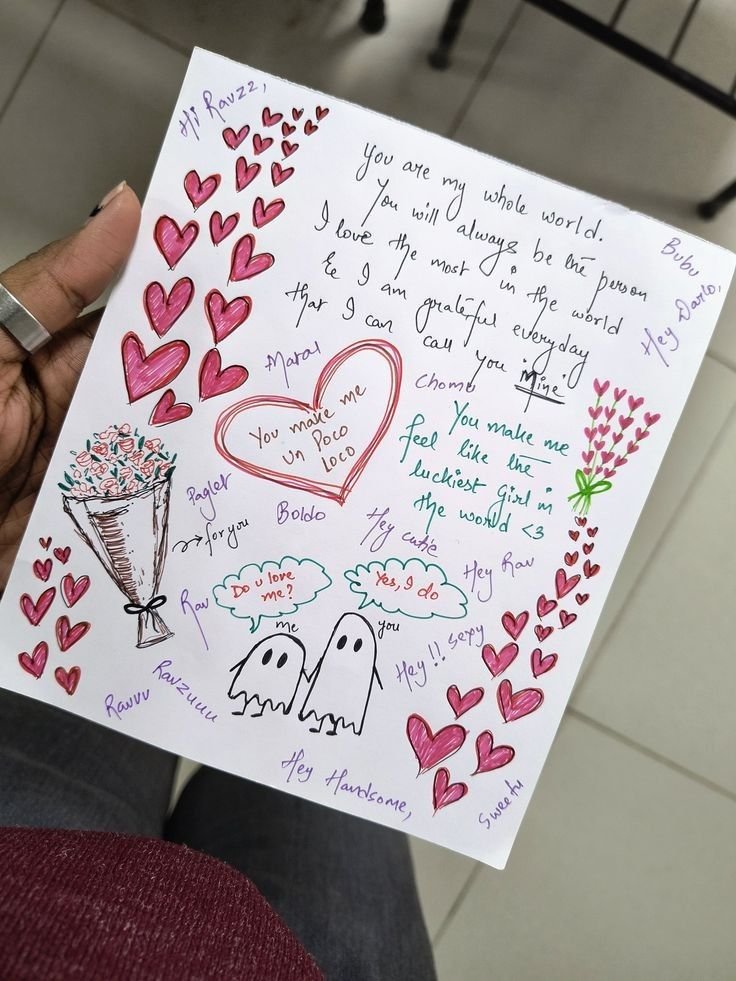 Hi Ravzz,
You are my whole world.
You will always be the person
I love the most in the world
& I am grateful everyday
that I can call you 'Mine'
Bubu
Hey Darlo,
Maral
Chomu
You make me
un Poco
loco
You make me
feel like the
luckiest girl in
the world <3
Paglet
Boldo
Hey cutie
→ for you
Hey Rav
Do u love
me?
Yes, I do
Rav
me
you
Hey!! sexy
Ravvu
Ravzuuu
Hey Handsome,
Sweetu